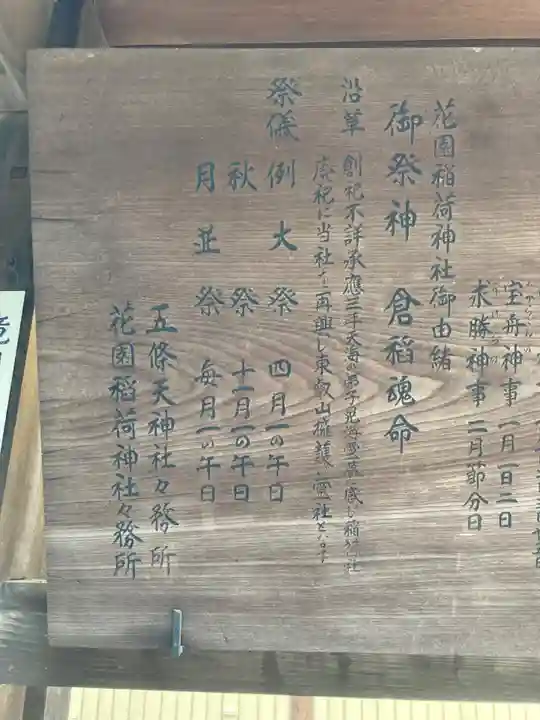 宝舟神事 一月一日二日
求勝神事 二月節分日
花園稲荷神社御由緒
御祭神 倉稲魂命
沿革 創祀不詳承應三年天海の弟子晃海霊夢に感じ稲荷社
廃祀に当社を再興し東叡山擁護の霊社と
祭儀 例大祭 四月一の午日
秋祭 十一月一の午日
月並祭 毎月一の午日
五條天神社々務所
花園稲荷神社々務所